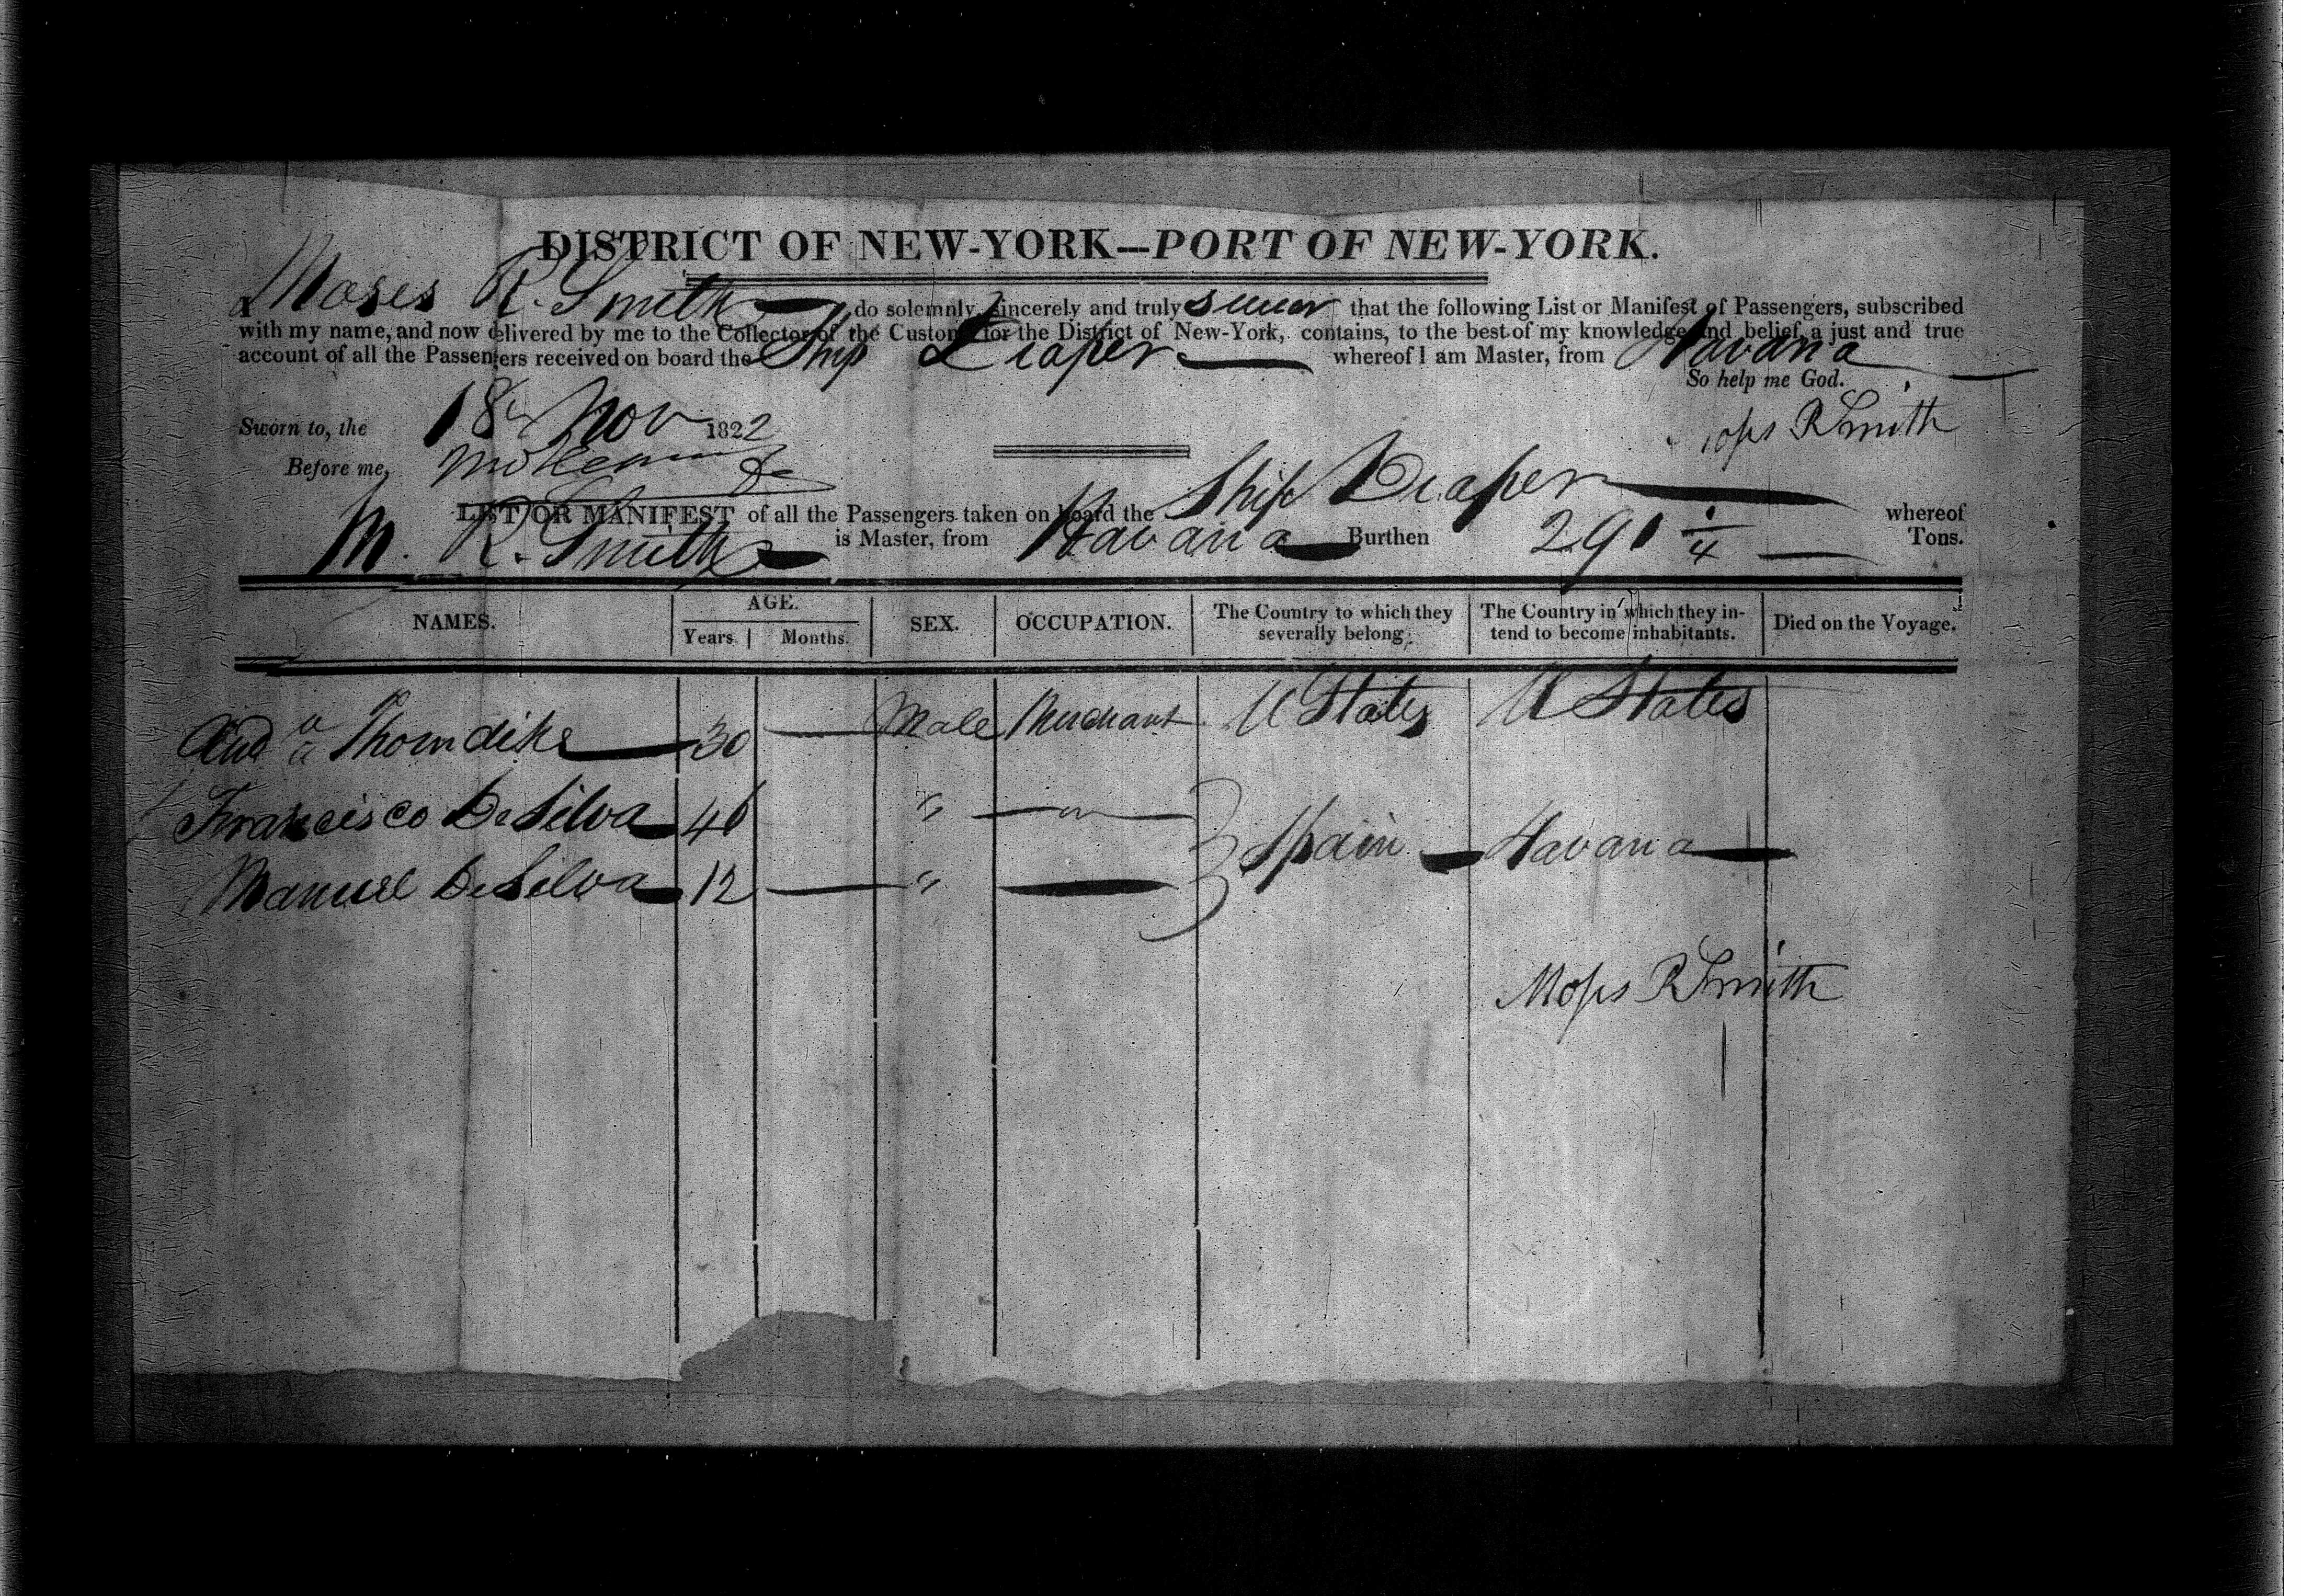 DISTRICT OF NEW-YORK—PORT OF NEW-YORK.
I Moses R. Smith do solemnly, sincerely and truly swear that the following List or Manifest of Passengers, subscribed
with my name, and now delivered by me to the Collector of the Customs for the District of New-York, contains, to the best of my knowledge and belief, a just and true
account of all the Passengers received on board the Ship Draper whereof I am Master, from Havana
So help me God.
Sworn to, the 18 Nov 1822
Moses R Smith
Before me,
LIST OR MANIFEST of all the Passengers taken on board the Ship Draper whereof
M. R. Smith is Master, from Havana Burthen 291 1/4 Tons.
NAMES. AGE. Years. Months. SEX. OCCUPATION. The Country to which they severally belong. The Country in which they intend to become inhabitants. Died on the Voyage.
Thorndike 30 Male Merchant U States U States
Francisco DeSilva 46 " "
Spain Havana
Manuel DeSilva 12 "
Moses R Smith